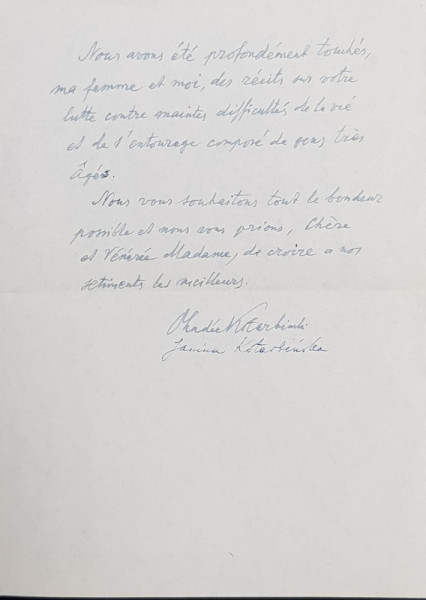 Nous avons été profondément touchés,
ma femme et moi, des récits sur votre
lutte contre maintes difficultés de la vie
et de l'entourage composé de gens très
Âgés.
Nous vous souhaitons tout le bonheur
possible et nous vous prions, Chère
et Vénérée Madame, de croire a nos
setiments les meilleurs.
Kotarbiński
Janina Kotarbińska